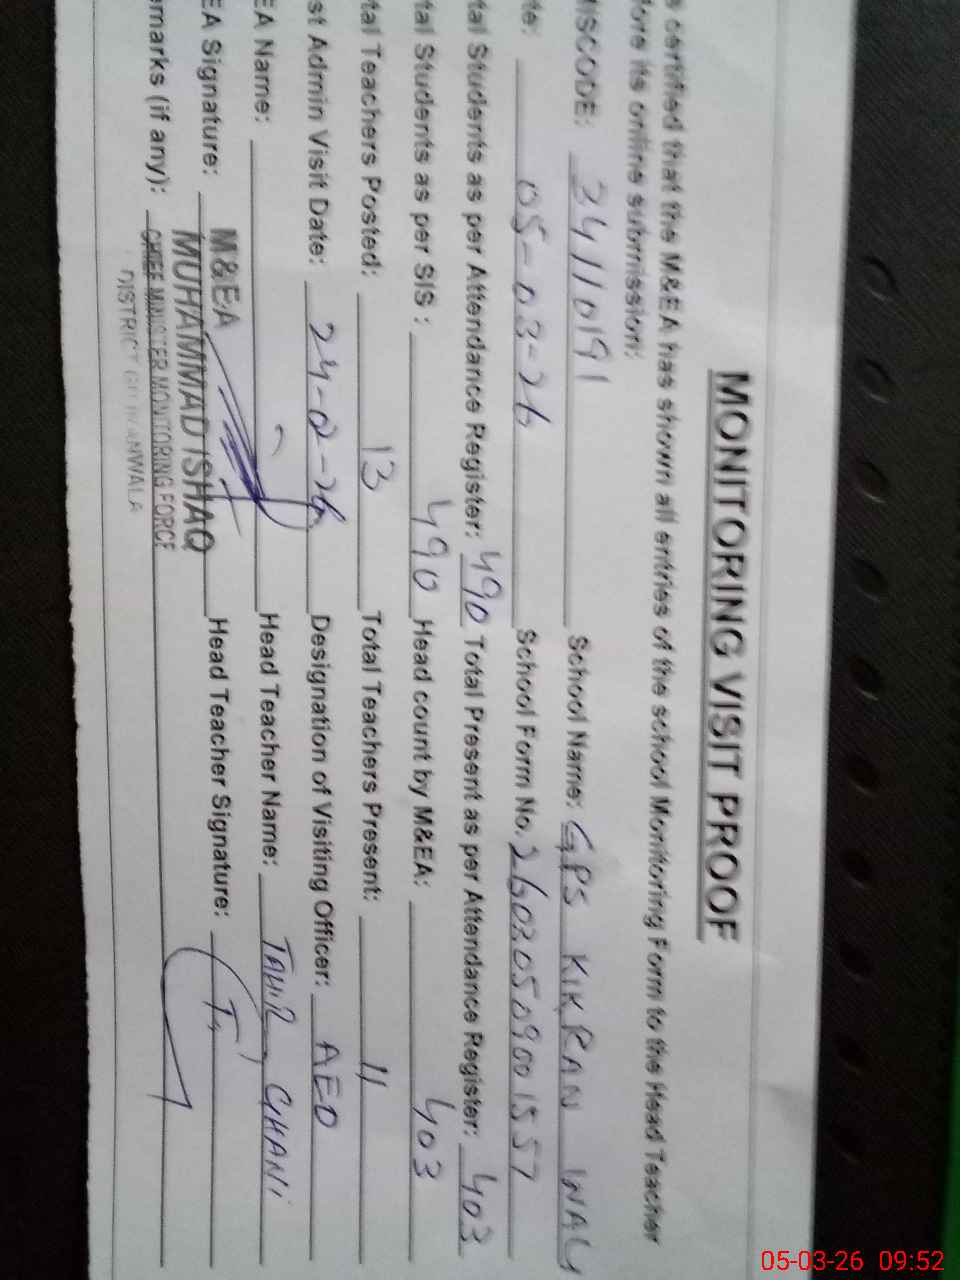 MONITORING VISIT PROOF
s certified that the M&EA has shown all entries of the school Monitoring Form to the Head Teacher
fore its online submission:
MISCODE: 34110191 School Name: GPS KIKRAN WALI
te: 05-03-26 School Form No. 26030509001557
tal Students as per Attendance Register: 490 Total Present as per Attendance Register: 403
tal Students as per SIS : 490 Head count by M&EA: 403
tal Teachers Posted: 13 Total Teachers Present: 11
st Admin Visit Date: 24-02-26 Designation of Visiting Officer: AEO
EA Name: Head Teacher Name: TAHIR GHANI
EA Signature: M&EA Head Teacher Signature:
MUHAMMAD ISHAQ
emarks (if any): CHIEF MINISTER MONITORING FORCE
DISTRICT GUJRANWALA
05-03-26 09:52